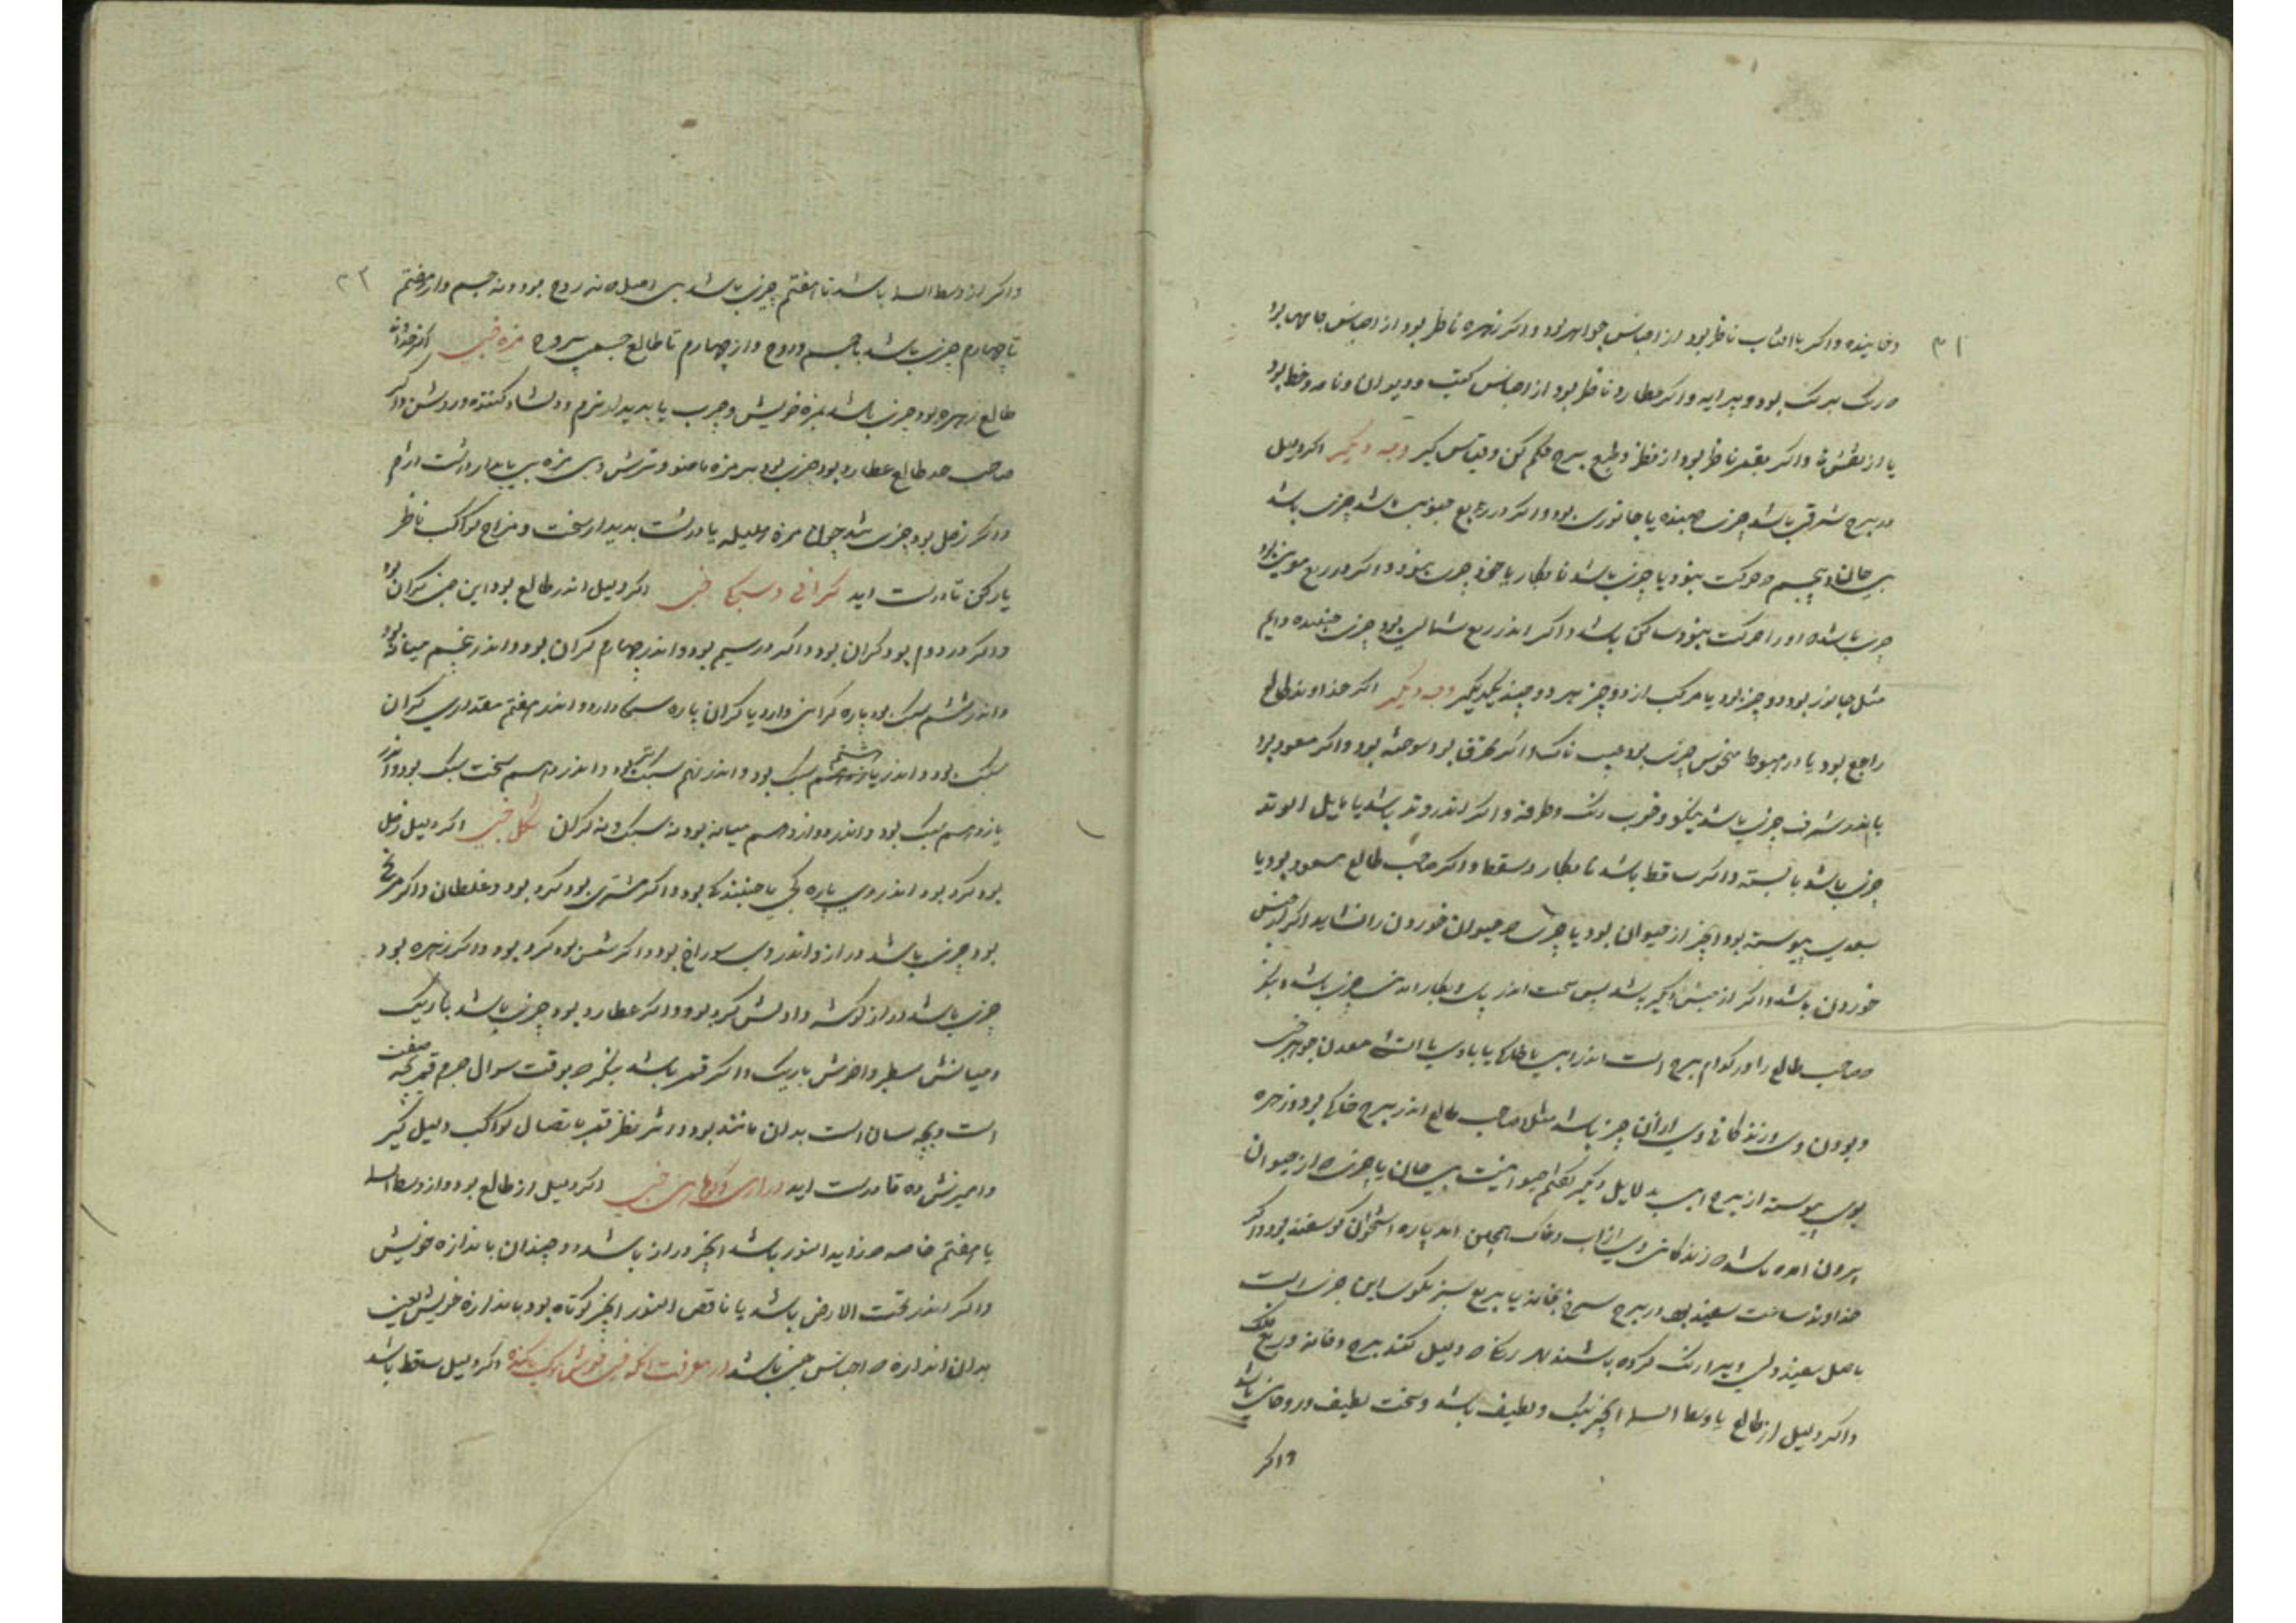 ۳۱
و اکر با افتاب ناظر بود از اجناس جواهر بود و اکر زهره ناظر بود از اجناس جامها بود
رنک برنک بود و پیرایه و اکر عطارد ناظر بود از اجناس کتب و دیوان و نامه و خط بود
یا از نقشها و اکر بقمر ناظر بود از نظر و طبع برج حکم کن و قیاس کیر وجه دیکر اکر دلیل
در برج شرقی باشد چیزی جنبنده یا جانوری بود و اکر در ربع جنوبی باشد چیزی باشد
بی جان و بجسم و حرکت بود یا چیزی باشد نابکار و اکر در ربع غربی بود
چیزی باشد که او را حرکت نبود و ساکن باشد و اکر اندر ربع شمالی بود چیزی جنبنده دایم
مثل جانور بود و دو چیز بود یا مرکب از دو چیز هر دو جنبد یکدیکر وجه دیکر اکر خداوند طالع
راجع بود یا در هبوط یا منحوس چیزی بود عیب ناک و اکر محترق بود سوخته بود و اکر مسعود بود
یا اندر شرف چیزی باشد نیکو و خوب رنک و طرفه و اکر اندر وتد باشد یا مایل الوتد
چیزی باشد بایسته و اکر ساقط باشد نابکار و سقط و اکر صاحب طالع مسعود بود یا
بسعدی پیوسته بود انچیز از حیوان بود یا چیزی که حیوان خوردن را شاید اکر از جنس
خوردن باشد و اکر از جنس دیکر باشد پس سخت اندر بکار اید چیزی باشد و بنکر
صاحب طالع را در کدام برج است اندر ابی یا خاکی یا بادی یا اتشی معدن جوهر
و بودن وی و زندکانی وی از ان چیز باشد مثل صاحب طالع اندر برج خاکی بود و زهره
بوی پیوسته از برج ابی بدلایل دیکر کفتم حیوانیست بی جان یا چیزی از حیوان
بیرون امده باشد که زندکانی وی از اب و خاک همچنین امد پاره استخوان کوسفند بود و اکر
خداوند ساعت سفید بود در برج سرخ بخانه یا بربع سبز بکوی این چیزی است
باصل سفید ولی ویرا رنک کرده باشند بهر رنکی که دلیل کند برج و خانه و ربع فلک
و اکر دلیل از طالع یا وسط السما انچیز نیک و لطیف باشد و سخت لطیف و روحانی باشد
و اکر
۳۲
و اکر از وسط السما باشد تا هفتم چیزی باشد بی اصل نه روح بود و نه جسم و از هفتم
تا چهارم چیزی باشد با جسم و روح و از چهارم تا طالع جسمی بیروح مزه خبی اکر خداوند
طالع زهره بود چیزی باشد بمزه خویش و چرب یا بدیدار نرم و دلشاد کننده و روشن و اکر
صاحب طالع عطارد بود چیزی بود بر مزه و ترش و بی مزه
و اکر زحل بود چیزی باشد چون مزه هلیله یا درشت بدیدار سخت و مزاج کواکب ناظر
یاد کن تا درست اید کرانی و سبکی خبی اکر دلیل اندر طالع بود این خبی کران بود
و اکر در دوم بود کران بود و اکر در سیم بود و اندر چهارم کران بود و اندر پنجم میانه بود
و اندر ششم سبک بود پاره کرانی دارد یا کران پاره سبکی دارد و اندر هفتم مقداری کران
سبک بود و اندر هشتم سبک بود و اندر نهم سبکتر بود و اندر دهم سخت سبک بود و اندر
یازدهم سبک بود و اندر دوازدهم میانه بود نه سبک و نه کران شکل خبی اکر دلیل زحل
بود کرد بود اندر وی پاره کجی یا جنبندکی بود و اکر مشتری بود کرد بود و غلطان و اکر مریخ
بود چیزی باشد دراز و اندر وی سوراخ بود و اکر شمس بود کرد بود و اکر زهره بود
چیزی باشد دراز کوشه و اولش کرد بود و اکر عطارد بود چیزی باشد باریک
و میانش سطبر و اخرش باریک و اکر قمر باشد بنکر که بوقت سوال جرم قمر بچه صفت
است و بچه سان است بدان مانند بود و اثر نظر قمر باتصال کواکب دلیل کیر
و امیزش ده تا درست اید درازی و کوتاهی خبی اکر دلیل از طالع بود و از وسط السما
یا هفتم خاصه که زاید النور باشد انچیز دراز باشد و دو چندان باندازه خویش
و اکر اندر تحت الارض باشد یا ناقص النور انچیز کوتاه بود باندازه خویش یعنی
بدان اندازه که اجناس خبی باشد در معرفت انکه خبی باکنده اکر دلیل ساقط باشد